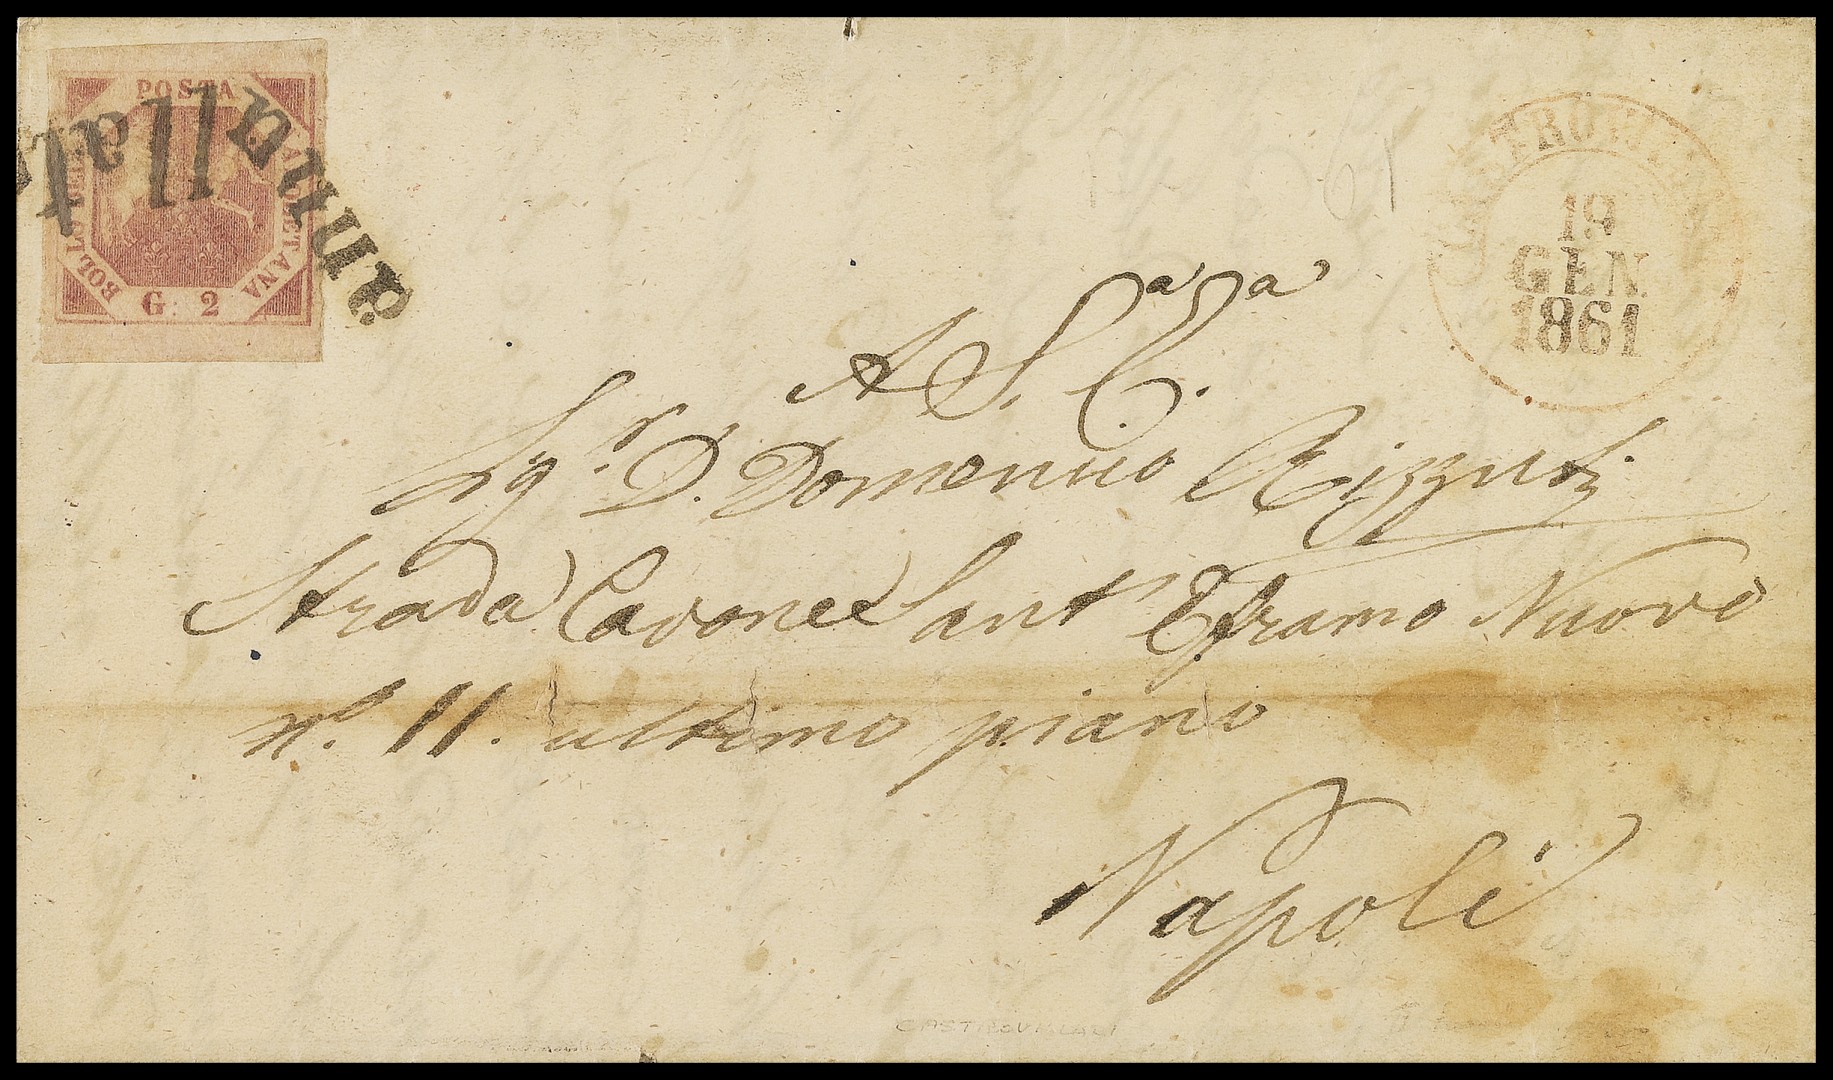 POSTA
BOLLO DELLA
NAPOLETANA
G. 2
Annullato
CASTROVILLARI
19
GEN
1861
61
A S. E.za
Sig.r D. Domenico Rizzuti
Strada Cavone Sant' Eframo Nuovo
n.o 11. ultimo piano
Napoli
CASTROVILLARI